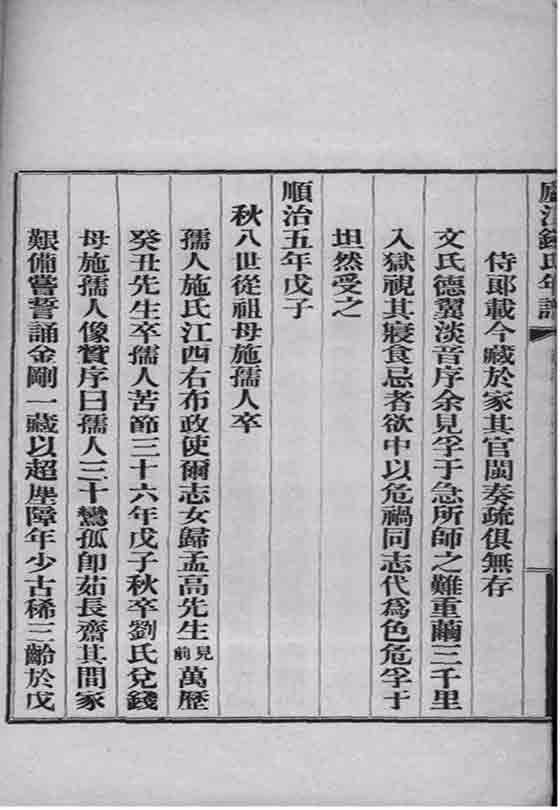 廬江錢氏年譜
侍郞載今藏於家其官閩奏疏俱無存
文氏德翼淡音序余見孚于急所師之難重繭三千里
入獄視其寢食忌者欲中以危禍同志代爲色危孚于
坦然受之
順治五年戊子
秋八世從祖母施孺人卒
孺人施氏江西右布政使爾志女歸孟高先生見前萬歷
癸丑先生卒孺人苦節三十六年戊子秋卒劉氏兌錢
母施孺人像贊序曰孺人三十鸞孤卽茹長齋其間家
艱備嘗誓誦金剛一藏以超塵障年少古稀三齡於戊